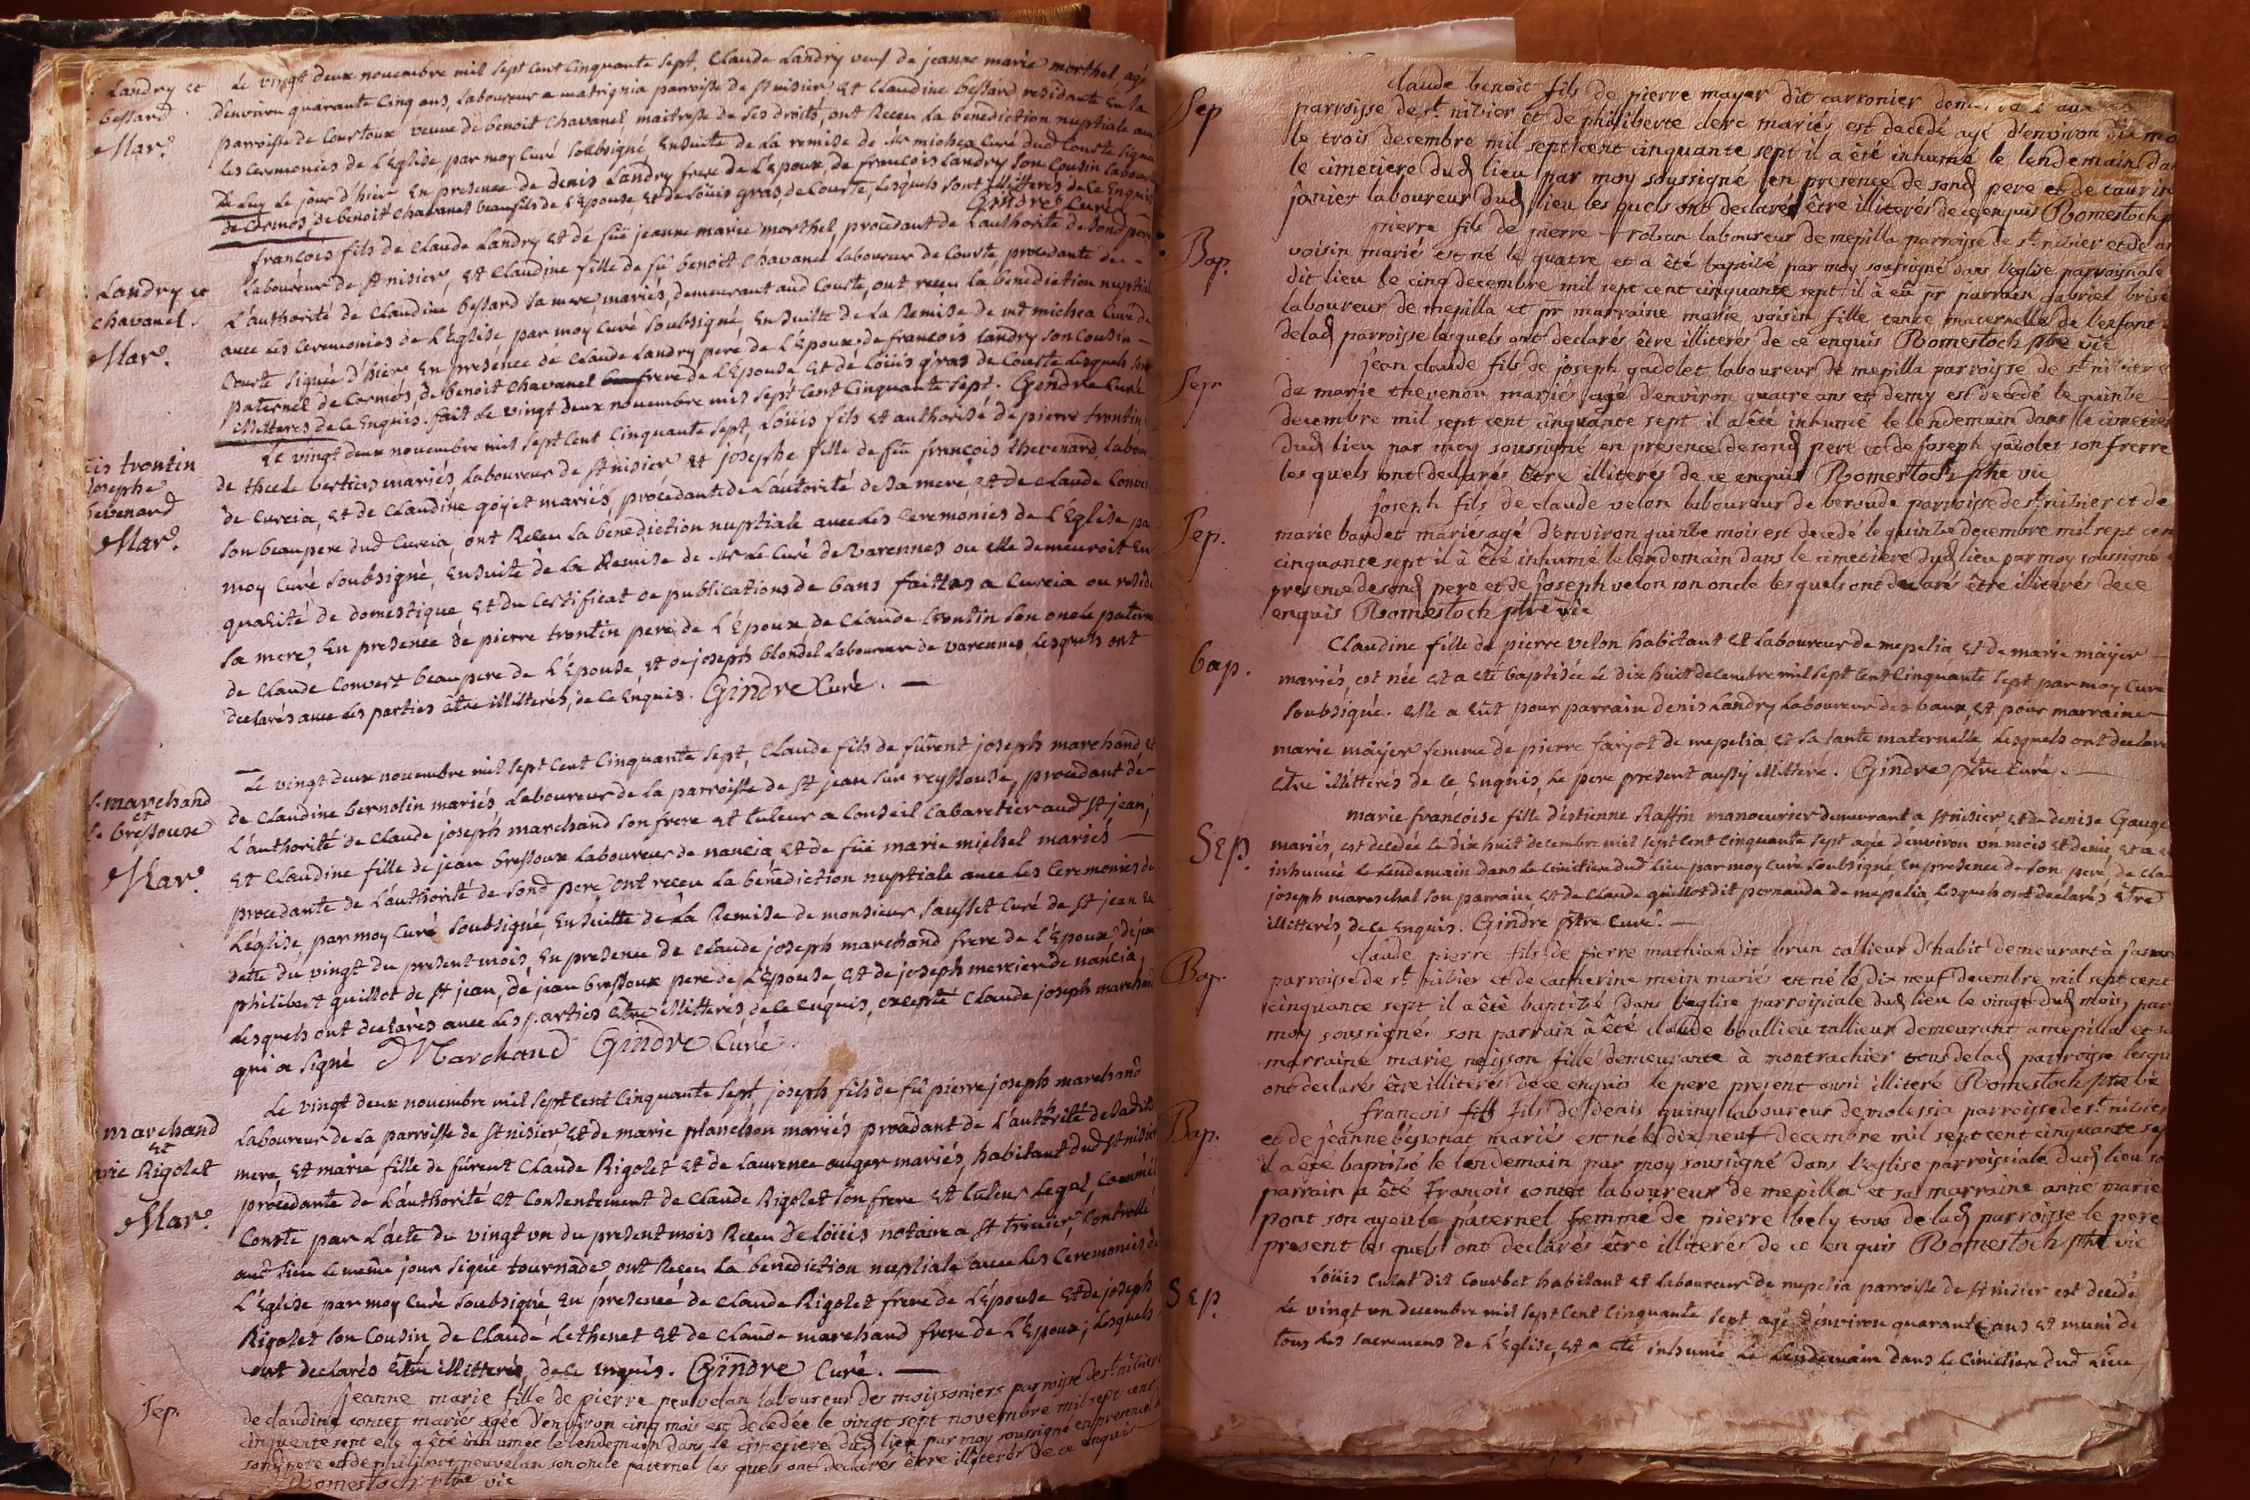 Landry et
bessard
Mar.
Le vingt deux novembre mil sept cent cinquante sept, Claude Landry veuf de jeanne marie morthel, agé
d'environ quarante cinq ans, laboureur a matrignia parroisse de st nisier et Claudine bessard residante en la
parroisse de Courtoux veuve de benoit Chavanel, maitresse de ses droits, ont Receu la benediction nuptiale avec
les ceremonies de l'Eglise par moy Curé soubsigné, Ensuite de la remise de Mr michea Curé dud Couste signée
de Luy le jour d'hier En presence de denis Landry frere de l'Epoux, de francois Landry son Cousin laboureur
de Cormos, de benoit Chavanel beaufils de l'Epouse et de Loüis gras, de Couste, Lesquels sont illitterés de ce Enquis
Gindre Curé
Landry et
chavanel.
Mar.
francois fils de Claude Landry et de füe jeanne marie morthel, procedant de l'authorité de sond pere
laboureur de st nisier, et Claudine fille de fû benoit Chavanel laboureur de Couste procedante de
L'authorité de Claudine bessard sa mere, mariés, demeurant aud Couste, ont receu la benediction nuptiale
avec les ceremonies de l'Eglise par moy Curé soubsigné, En suitte de la Remise de mr michea Curé de
Couste signée d'hier En presence de Claude Landry pere de l'Epoux, de francois landry son Cousin
paternel de Cormos, de benoit Chavanel frere de l'Epouse et de Loüis gras de Couste Lesquels sont
illitterés, de ce Enquis. fait le vingt deux novembre mil sept cent cinquante sept. Gindre Curé
trontin
josephe
Mar.
Le vingt deux novembre mil sept cent cinquante sept, Loüis fils et authorisé de pierre trontin
de thecle bertiers mariés laboureur de st nisier et josephe fille de feu françois thevenard labou
de Curcia, et de Claudine goyet mariés, procedante de l'autorité de sa mere, et de Claude Convert
son beaupere dud Curcia, ont Receu la benediction nuptiale avec les ceremonies de l'Eglise par
moy Curé soubsigné, Ensuite de la Remise de Mr le Curé de varennes ou elle demeuroit En
qualité de domestique, et du certificat de publications de bans faittes a Curcia ou reside
sa mere, En presence de pierre trontin pere de l'Epoux de Claude trontin son oncle paternel
de Claude Convert beaupere de l'Epouse, et de joseph blondel laboureur de varennes, Lesquels ont
declarés avec les parties etre illitterés, de ce Enquis. Gindre Curé.
marchand
et
bressoux
Mar.
Le vingt deux novembre mil sept cent cinquante sept, Claude fils de fûrent joseph marchand et
de Claudine bernolin mariés laboureur de la parroisse de St jean sur reyssouse, procedant de
L'authorité de Claude joseph marchand son frere et tuteur a Conseil Cabaretier aud St jean,
Et Claudine fille de jean bressoux laboureur de nancia et de füe marie michel mariés
procedante de l'authorité de sond pere ont receu la benediction nuptiale avec les Ceremonies de
L'église, par moy Curé soubsigné, Ensuitte de la Remise de monsieur sausset Curé de St jean En
date du vingt du present mois, En presence de Claude joseph marchand frere de l'Epoux de
philibert guillot de St jean, de jean bressoux pere de l'Epouse, et de joseph mercier de nancia,
Lesquels ont declarés avec les parties etre illitterés, de ce enquis, excepté Claude joseph marchand
qui a signé Marchand Gindre Curé.
marchand
et
Rigolet
Mar.
Le vingt deux novembre mil sept cent cinquante sept joseph fils de fû pierre joseph marchand
laboureur de la parroisse de St nisier et de marie planchon mariés procedant de l'authorité de ladite
mere, et marie fille de fûrent Claude Rigolet et de Laurence auger mariés, habitant dud st nisier
procedante de l'authorité et Consentement de Claude Rigolet son frere et tuteur Legal, Comme
Conste par l'acte du vingt un du present mois Receu de Loüis notaire a St trivier, Controllé
aud lieu le meme jour signé tournade, ont Receu la benediction nuptiale avec les Ceremonies de
L'Eglise par moy Curé soubsigné, En presence de Claude Rigolet frere de l'Epouse et de joseph
Rigolet son Cousin de Claude Lethenet et de Claude marchand frere de l'Epoux; Lesquels
ont declarés etre illitterés, de ce enquis. Gindre Curé.
Sep.
jeanne marie fille de pierre peuvelan laboureur des moissoniers parroisse de st nisier
de claudine contet mariés agée d'environ cinq mois est decedée le vingt sept novembre mil sept cent
cinquante sept elle a été inhumée le lendemain dans le cimetiere dud lieu par moy soussigné en presence de
sond pere et de philibert peuvelan son oncle paternel les quels ont declarés être illiterés de ce enquis
Romestoch ptre vic
Sep
claude benoit fils de pierre mayer dit carronier
parroisse de st nizier et de philiberte clerc mariés est decedé agé d'environ dix mo
le trois decembre mil sept cent cinquante sept il a été inhumé le lendemain dan
le cimetiere dud lieu par moy soussigné en presence de sond pere et de taurin
janier laboureur dud lieu les quels ont declarés être illiterés de ce enquis Romestoch p
Bap.
pierre fils de pierre robin laboureur de mepilla parroisse de st nizier et de
voisin mariés est né le quatre et a été baptisé par moy soussigné dans l'eglise parroissiale
dit lieu le cinq decembre mil sept cent cinquante sept il à eû pr parrain gabriel
laboureur de mepilla et pr marraine marie voisin fille tante maternelle de l'enfant
de lad parroisse lesquels ont declarés être illiterés de ce enquis Romestoch ptre vic
Sep
jean claude fils de joseph gadolet laboureur de mepilla parroisse de st nizier et
de marie thevenon mariés agé d'environ quatre ans et demy est decedé le quinze
decembre mil sept cent cinquante sept il a été inhumé le lendemain dans le cimetiere
dud lieu par moy soussigné en presence de sond pere et de joseph gadolet son frerre
les quels ont declarés être illiterés de ce enquis Romestoch ptre vic
Sep.
joseph fils de claude velon laboureur de beroude parroisse de st nizier et de
marie baudet mariés agé d'environ quinze mois est decedé le quinze decembre mil sept cen
cinquante sept il à été inhumé le lendemain dans le cimetiere dud lieu par moy soussigné
presence de sond pere et de joseph velon son oncle les quels ont declaré être illiterés de ce
enquis Romestoch ptre vic
bap.
Claudine fille de pierre velon habitant et laboureur de mepelia et de marie mäyer
mariés, est née et a eté baptisée le dix huit decembre mil sept cent cinquante sept par moy Curé
soubsigné. elle a eüt pour parrain denis Landry laboureur des vaux, et pour marraine
marie mäyer femme de pierre farjot de mepelia et sa tante maternelle Lesquels ont declaré
etre illitterés de ce Enquis, le pere present aussy illitteré. Gindre ptre Curé.
Sep.
marie françoise fille d'estienne Raffin manoeuvrier demeurant a st nisier et de denise Gauge
mariés, est decedée le dix huit decembre mil sept cent cinquante sept agée d'environ un mois et demie, et a e
inhumée le lendemain dans le Cimetiere dud lieu par moy Curé soubsigné, En presence de son pere, de cla
joseph mareschal son parrain, et de Claude guillot dit pernauda de mepelia, Lesquels ont declarés etre
illitterés, de ce Enquis. Gindre ptre Curé.
Bap.
claude pierre fils de pierre mathian dit brun tallieur d'habit demeurant à
parroisse de st nizier et de catherine mein mariés est né le dix neuf decembre mil sept cent
cinquante sept il a été baptizé dans l'eglise parroissiale dud lieu le vingt dud mois, par
moy soussigné son parrain à été claude boullieu tallieur demeurant a mepilla et sa
marraine marie neisson fille demeurante à montrachier tous de lad parroisse lesqu
ont declarés être illiterés de ce enquis le pere present aussi illiteré Romestoch ptre vic
Bap.
francois fils de denis quiny laboureur de molessia parroisse de st nizier
et de jeanne besonat mariés est né le dix neuf decembre mil sept cent cinquante sep
il a été baptisé le lendemain par moy soussigné dans l'eglise parroissiale dud lieu so
parrain a été françois contet laboureur de mepilla et sa marraine anne marie
pont son ayeule paternel femme de pierre bely tous de lad parroisse le pere
present les quels ont declarés être illiterés de ce enquis Romestoch ptre vic
Sep.
Loüis dit Courbet habitant et laboureur de mepelia parroisse de st nisier est decedé
le vingt un decembre mil sept cent cinquante sept agé d'environ quarante ans et muni de
tous les sacremens de l'Eglise, et a eté inhumé le lendemain dans le Cimetiere dud lieu